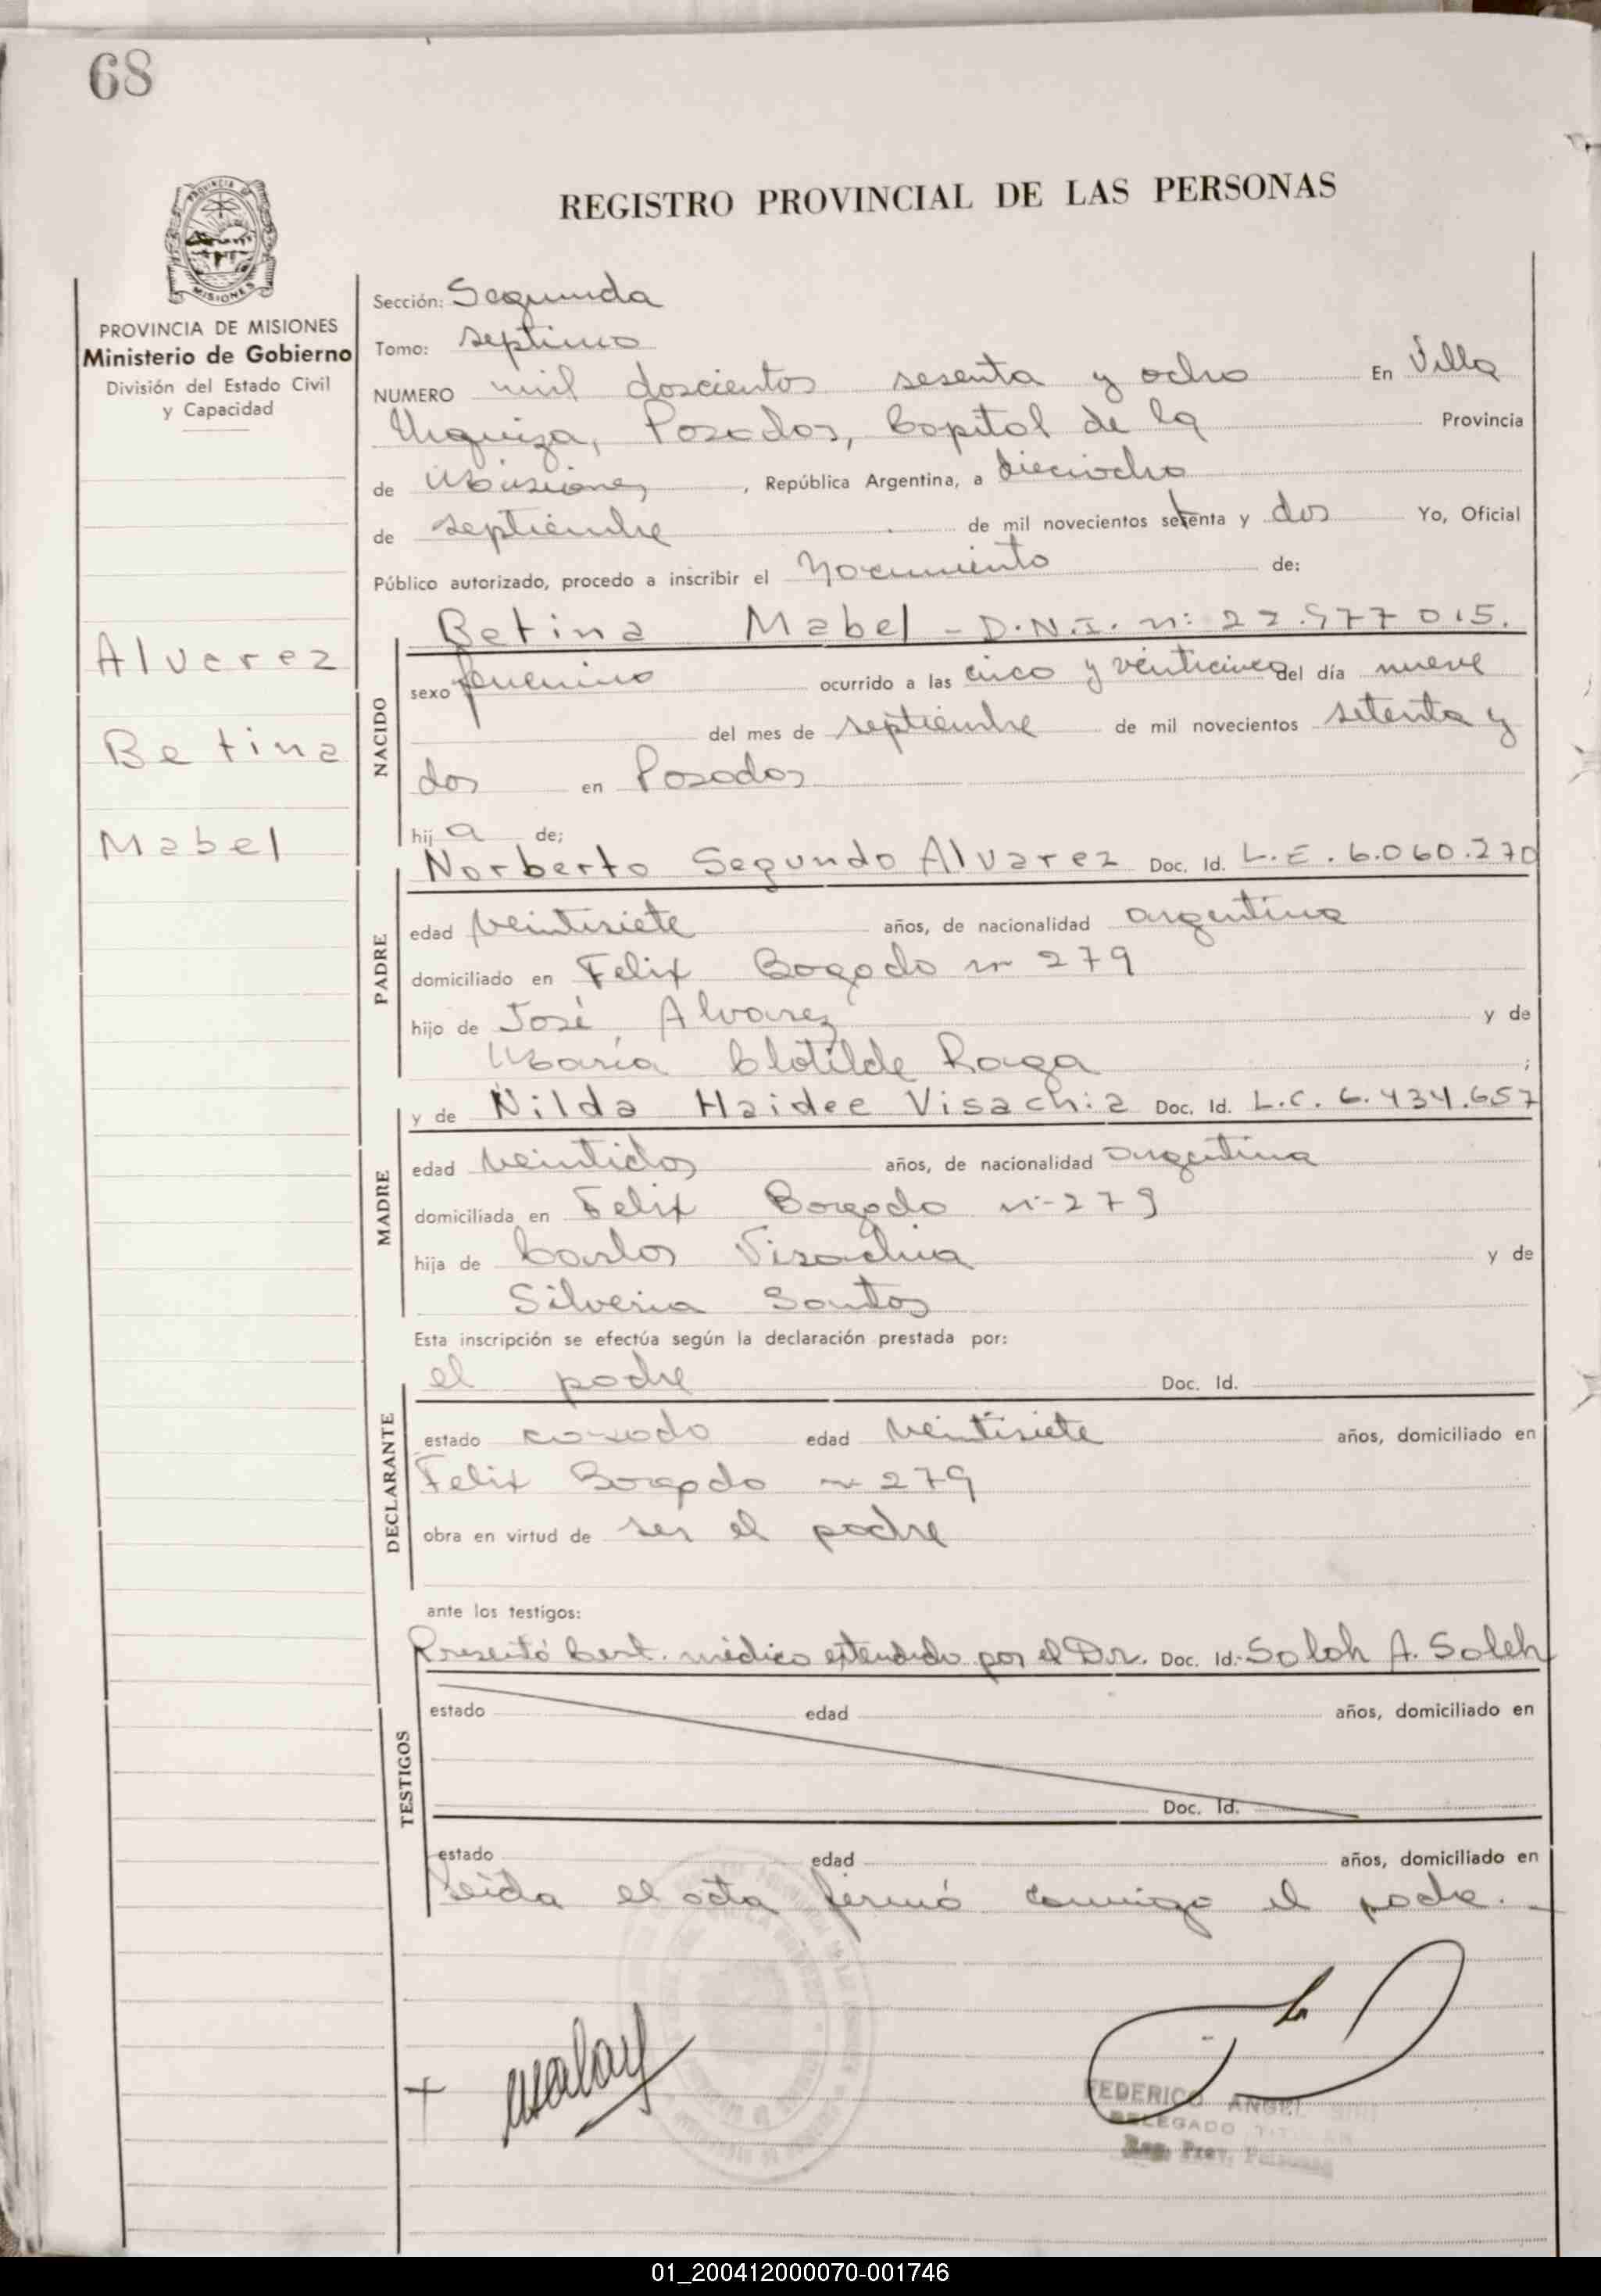 68
REGISTRO PROVINCIAL DE LAS PERSONAS
MISIONES
PROVINCIA DE MISIONES
Ministerio de Gobierno
División del Estado Civil
y Capacidad
Alvarez
Betina
Mabel
Sección: Segunda
Tomo: septimo
NUMERO mil doscientos sesenta y ocho En Villa
Urquiza, Posadas, Capital de la Provincia
de Misiones, República Argentina, a dieciocho
de septiembre de mil novecientos setenta y dos Yo, Oficial
Público autorizado, procedo a inscribir el Nacimiento de:
NACIDO
Betina Mabel - D.N.I. n: 22.977 015.
sexo femenino ocurrido a las cinco y veinticinco del día nueve
del mes de septiembre de mil novecientos setenta y
dos en Posadas
hij a de;
PADRE
Norberto Segundo Alvarez Doc. Id. L.E. 6.060.270
edad veintisiete años, de nacionalidad argentina
domiciliado en Felix Bogado nº 279
hijo de José Alvarez y de
María Clotilde Raga ;
MADRE
y de Nilda Haidee Visachia Doc. Id. L.C. 6.434.657
edad veintidos años, de nacionalidad argentina
domiciliada en Felix Bogado nº 279
hija de Carlos Visachia y de
Silveria Santos
Esta inscripción se efectúa según la declaración prestada por:
DECLARANTE
el padre Doc. Id.
estado casado edad veintisiete años, domiciliado en
Felix Bogado nº 279
obra en virtud de ser el padre
ante los testigos:
TESTIGOS
Presentó Cert. médico extendido por el Dr. Doc. Id. Salah A. Saleh
estado edad años, domiciliado en
Doc. Id.
estado edad años, domiciliado en
Leida el acta firmó conmigo el padre.
FEDERICO ANGEL
DELEGADO
Reg. Prov. Personas
01_200412000070-001746